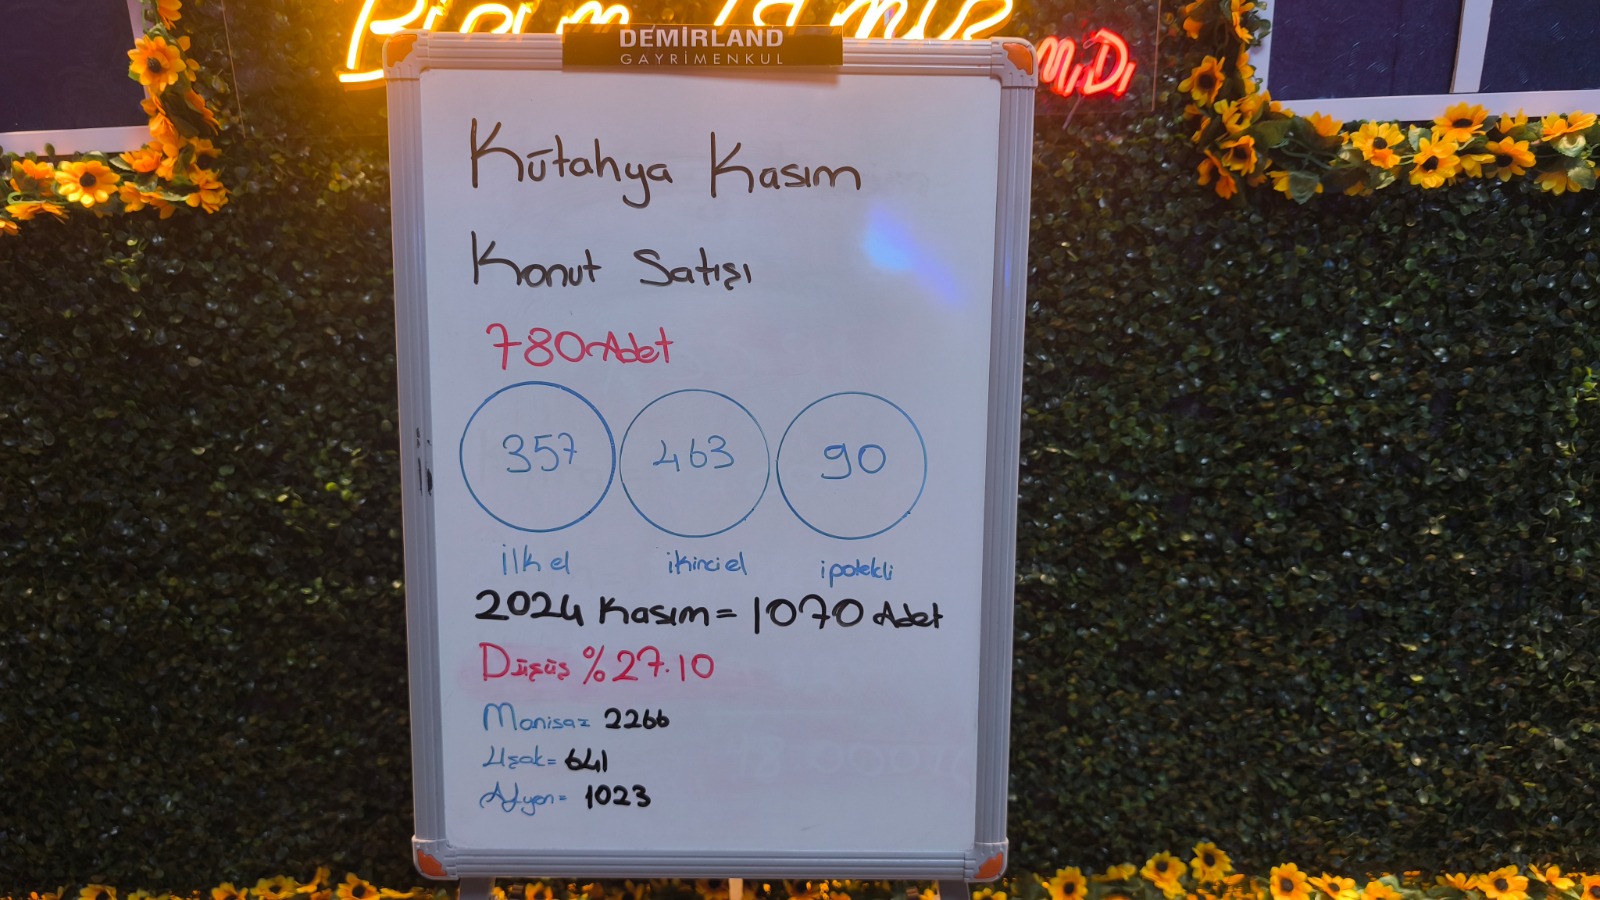 Bizim İşimiz
MıDı
DEMİRLAND
GAYRİMENKUL
Kütahya Kasım
Konut Satışı
780 Adet
357 463 90
ilk el ikinci el ipotekli
2024 Kasım = 1070 Adet
Düşüş %27.10
Manisa = 2266
Uşak = 641
Afyon = 1023